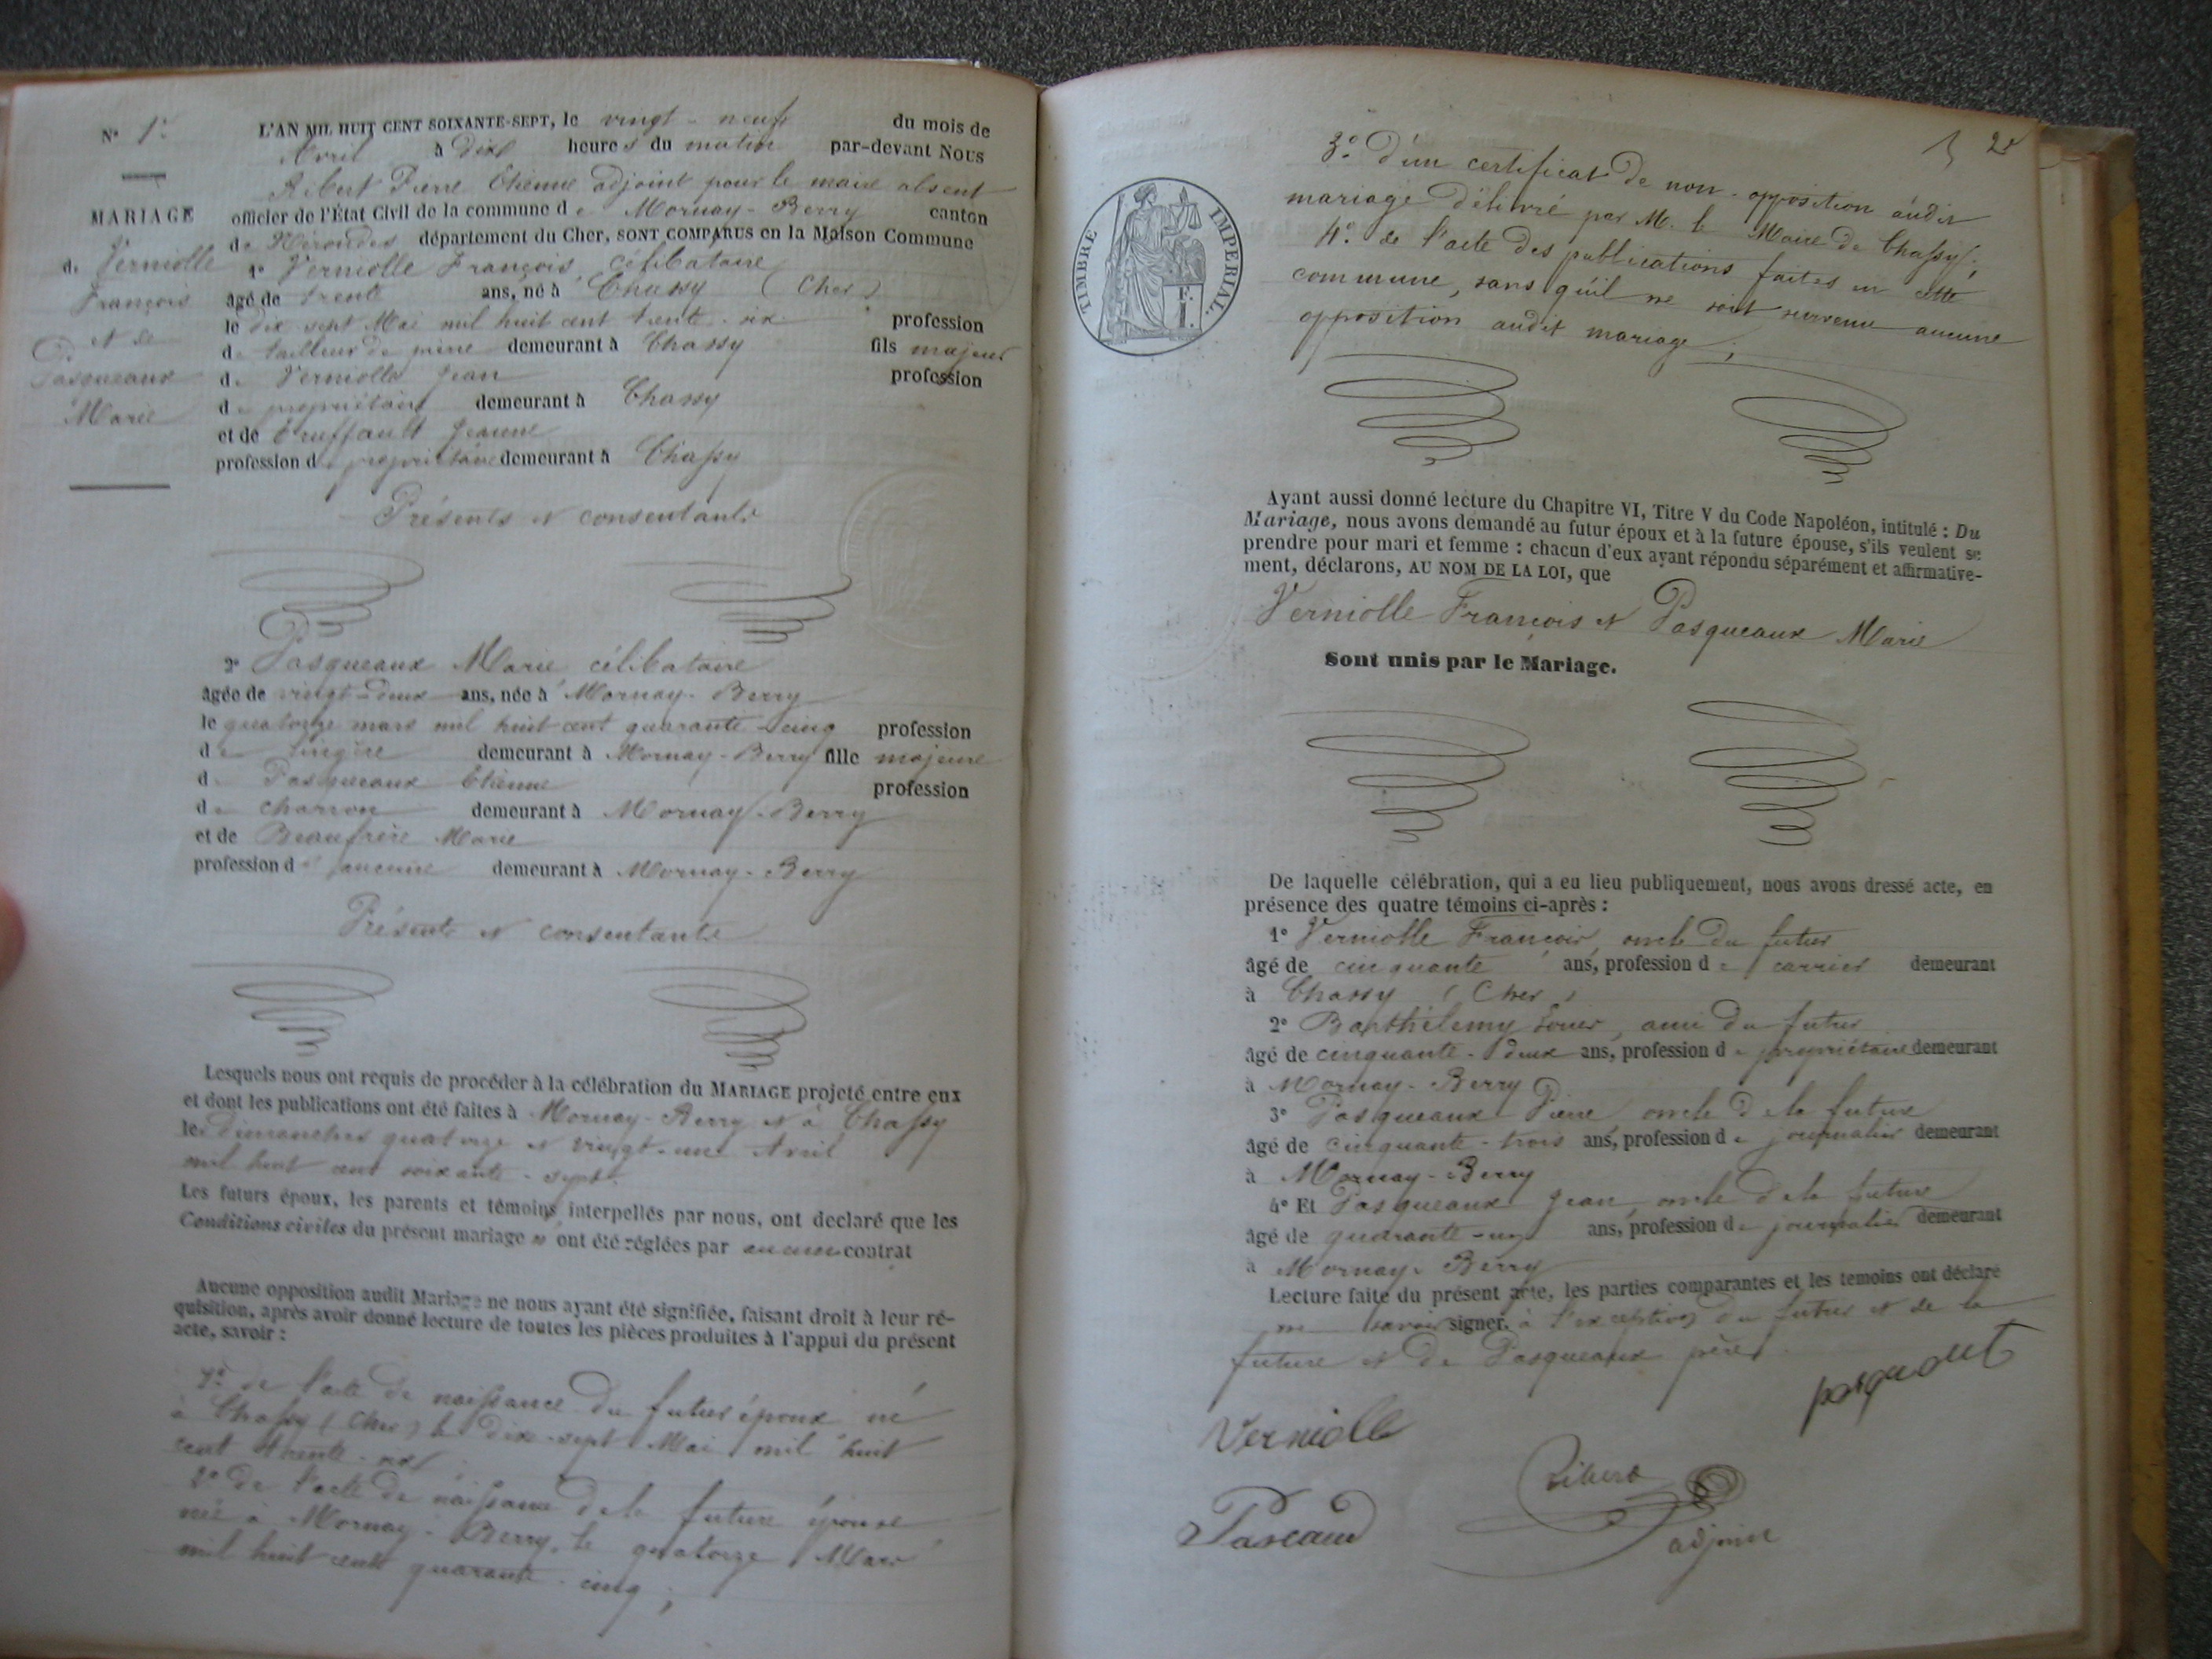 N° 1er
L'AN MIL HUIT CENT SOIXANTE-SEPT, le vingt-neuf du mois de
Avril à dix heures du matin par-devant NOUS
Ribert Pierre Etienne adjoint pour le maire absent
MARIAGE
officier de l'État Civil de la commune de Mornay-Berry canton
de Nérondes département du Cher, SONT COMPARUS en la Maison Commune
de Verniolle
François
et de
Pasqueaux
Marie
1° Verniolle François, célibataire
âgé de trente ans, né à Chassy (Cher)
le dix sept Mai mil huit cent trente-six profession
de tailleur de pierre demeurant à Chassy fils majeur
de Verniolle Jean profession
de propriétaire demeurant à Chassy
et de Truffault Jeanne
profession de propriétaire demeurant à Chassy
Présents et consentants
2° Pasqueaux Marie célibataire
âgée de vingt-deux ans, née à Mornay-Berry
le quatorze mars mil huit cent quarante-cinq profession
de lingère demeurant à Mornay-Berry fille majeure
de Pasqueaux Etienne profession
de charron demeurant à Mornay-Berry
et de Beaufrère Marie
profession d aucune demeurant à Mornay-Berry
Présents et consentants
Lesquels nous ont requis de procéder à la célébration du MARIAGE projeté entre eux
et dont les publications ont été faites à Mornay-Berry et à Chassy
les dimanches quatorze et vingt-un Avril
mil huit cent soixante-sept.
Les futurs époux, les parents et témoins interpellés par nous, ont declaré que les
Conditions civiles du présent mariage n'ont été réglées par aucun contrat
Aucune opposition audit Mariage ne nous ayant été signifiée, faisant droit à leur ré-
quisition, après avoir donné lecture de toutes les pièces produites à l'appui du présent
acte, savoir :
1° de l'acte de naissance du futur époux né
à Chassy (Cher) le dix-sept Mai mil huit
cent trente-six
2° de l'acte de naissance de la future épouse
née à Mornay-Berry, le quatorze Mars
mil huit cent quarante-cinq ;
2e
TIMBRE IMPERIAL.
3° d'un certificat de non-opposition audit
mariage délivré par M. le Maire de Chassy ;
4° de l'acte des publications faites en cette
commune, sans qu'il ne soit survenu aucune
opposition audit mariage ;
Ayant aussi donné lecture du Chapitre VI, Titre V du Code Napoléon, intitulé : Du
Mariage, nous avons demandé au futur époux et à la future épouse, s'ils veulent se
prendre pour mari et femme : chacun d'eux ayant répondu séparément et affirmative-
ment, déclarons, AU NOM DE LA LOI, que
Verniolle François et Pasqueaux Marie
Sont unis par le Mariage.
De laquelle célébration, qui a eu lieu publiquement, nous avons dressé acte, en
présence des quatre témoins ci-après :
1° Verniolle François, oncle du futur
âgé de cinquante ans, profession de carrier demeurant
à Chassy (Cher)
2° Barthélemy, ami du futur
âgé de cinquante-deux ans, profession de propriétaire demeurant
à Mornay-Berry
3° Pasqueaux Pierre oncle de la future
âgé de cinquante-trois ans, profession de journalier demeurant
à Mornay-Berry
4° Et Pasqueaux Jean, oncle de la future
âgé de quarante-un ans, profession de journalier demeurant
à Mornay-Berry
Lecture faite du présent acte, les parties comparantes et les temoins ont déclaré
ne savoir signer. à l'exception du futur et de la
future et de Pasqueaux père.
pasquaut
Verniolle
Ribert
Pascaud
adjoint